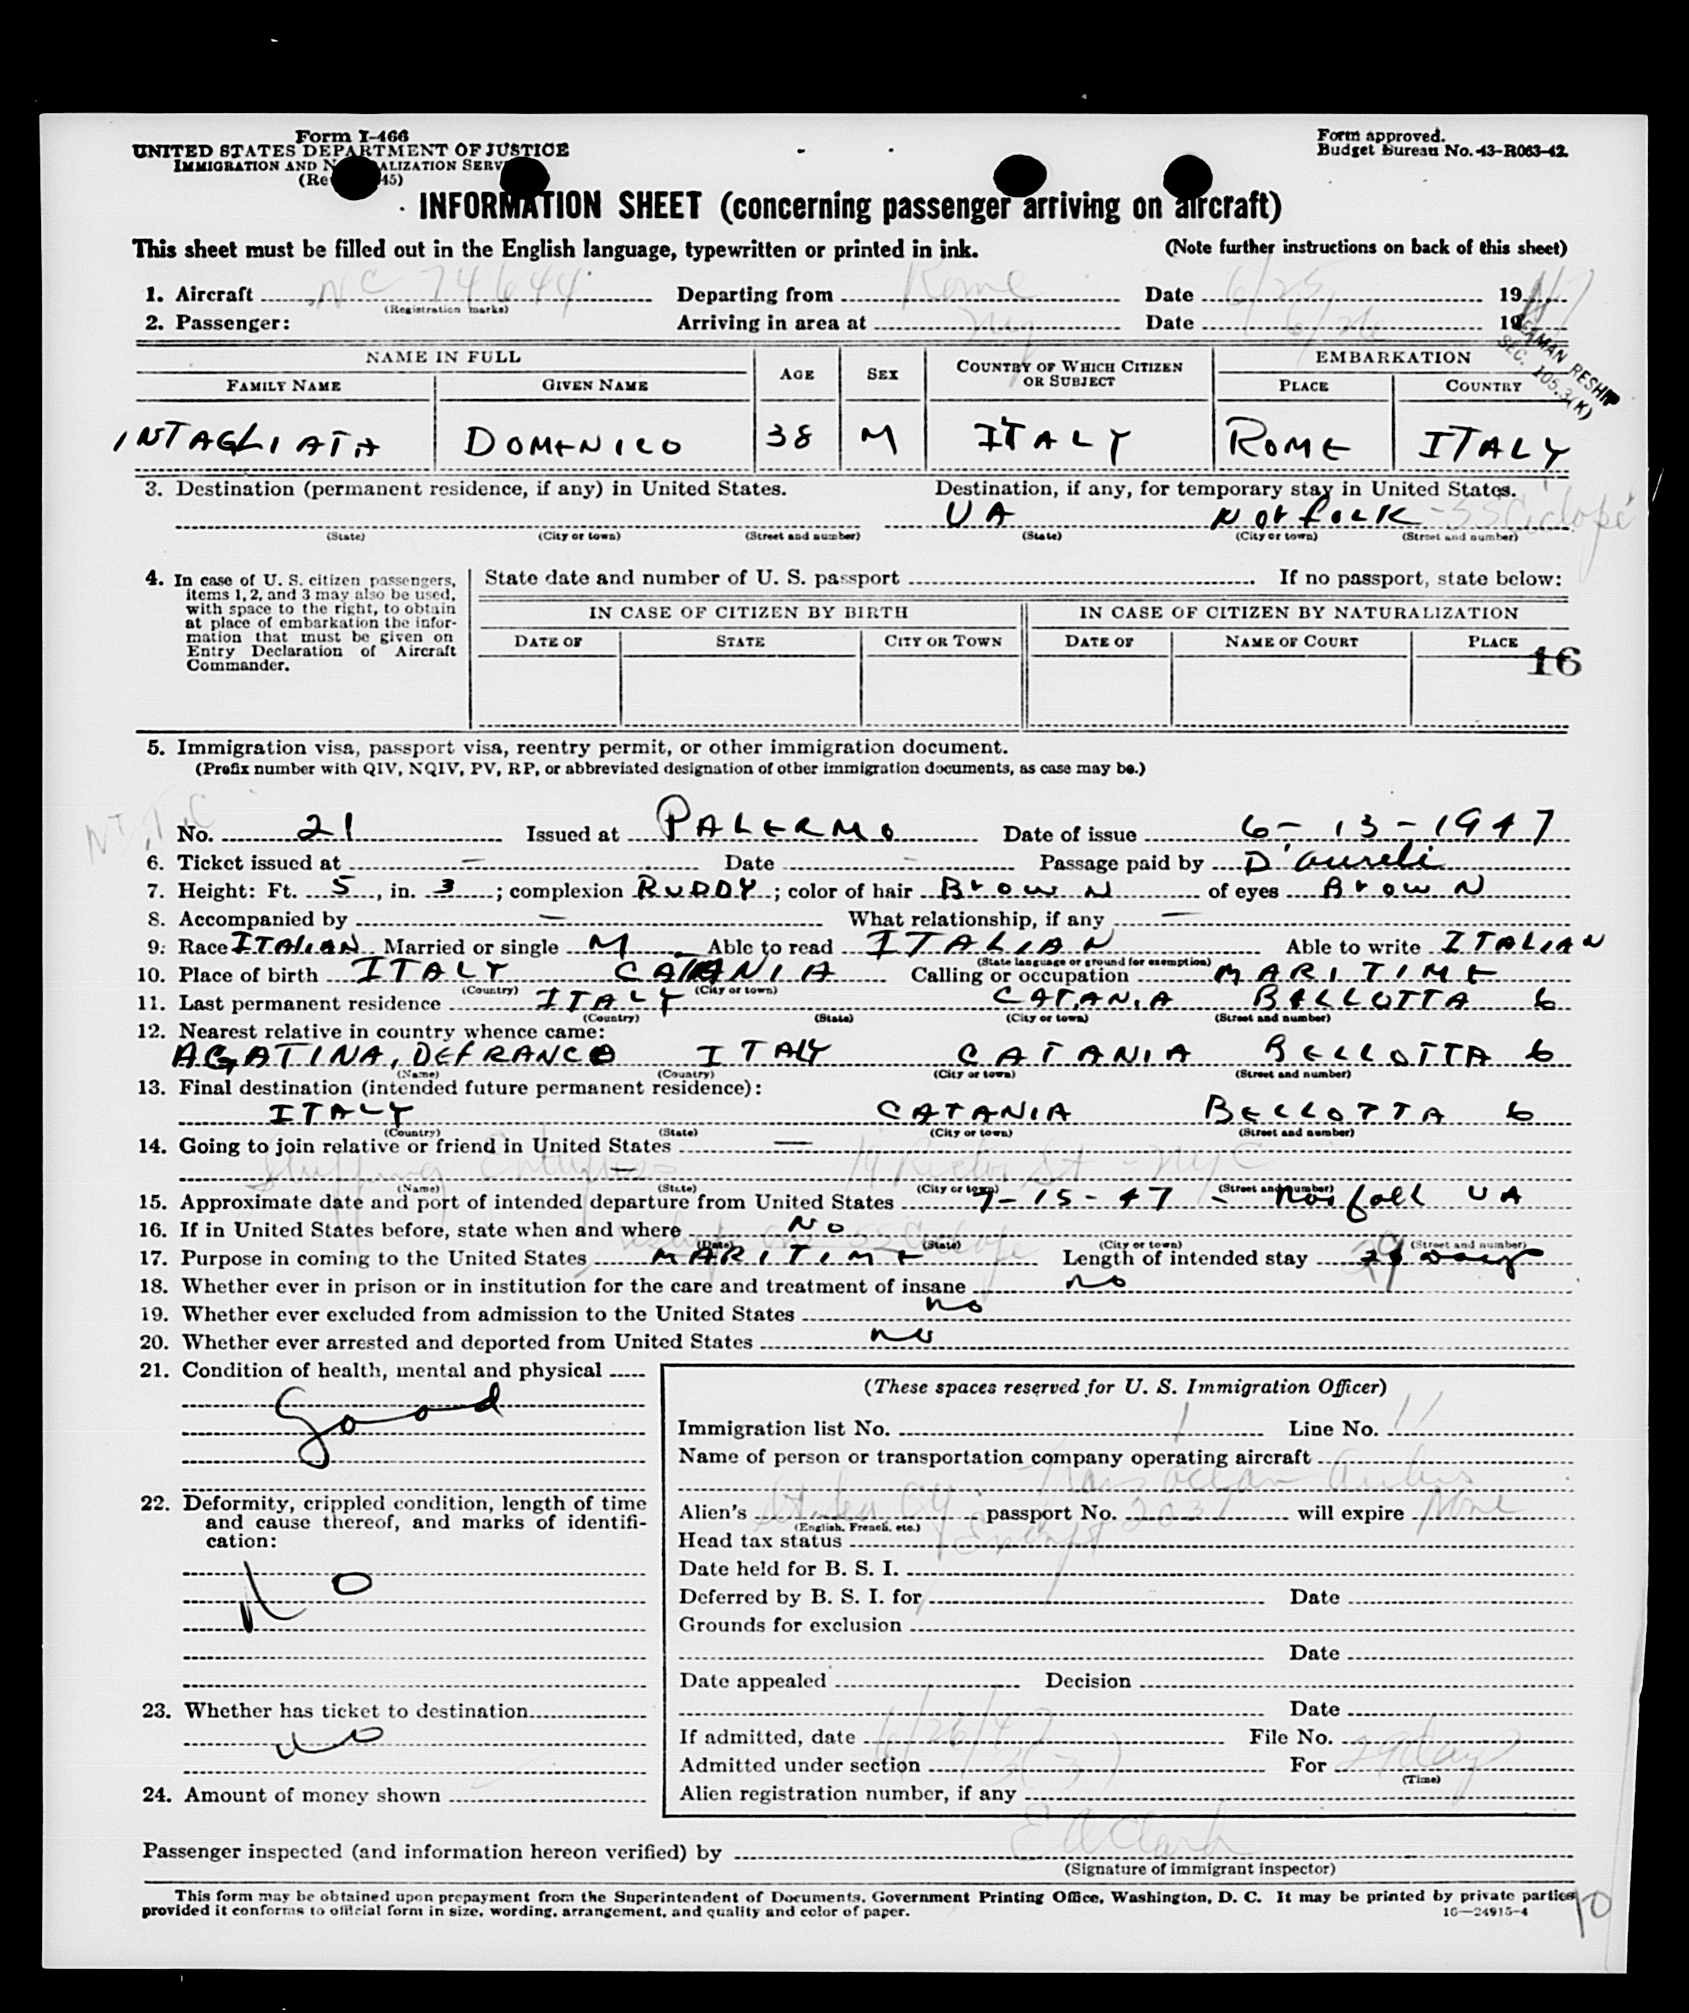 Form I-466
UNITED STATES DEPARTMENT OF JUSTICE
IMMIGRATION AND N ALIZATION SERV
(Re 45)
Form approved.
Budget Bureau No. 43-R063-42.
INFORMATION SHEET (concerning passenger arriving on aircraft)
This sheet must be filled out in the English language, typewritten or printed in ink. (Note further instructions on back of this sheet)
1. Aircraft NC 74644 Departing from Rome Date 6/25 1947
(Registration marks)
2. Passenger: Arriving in area at NY Date 6/26 19
SEAMAN RESHIP
SEC. 105.3(K)
NAME IN FULL AGE SEX COUNTRY OF WHICH CITIZEN OR SUBJECT EMBARKATION
FAMILY NAME GIVEN NAME PLACE COUNTRY
INTAGLIATA DOMENICO 38 M ITALY ROME ITALY
3. Destination (permanent residence, if any) in United States. Destination, if any, for temporary stay in United States.
UA Norfolk - SS Ciclope
(State) (City or town) (Street and number) (State) (City or town) (Street and number)
4. In case of U. S. citizen passengers, items 1, 2, and 3 may also be used, with space to the right, to obtain at place of embarkation the information that must be given on Entry Declaration of Aircraft Commander.
State date and number of U. S. passport If no passport, state below:
IN CASE OF CITIZEN BY BIRTH IN CASE OF CITIZEN BY NATURALIZATION
DATE OF STATE CITY OR TOWN DATE OF NAME OF COURT PLACE
16
5. Immigration visa, passport visa, reentry permit, or other immigration document.
(Prefix number with QIV, NQIV, PV, RP, or abbreviated designation of other immigration documents, as case may be.)
No. 21 Issued at PALERMO Date of issue 6-13-1947
6. Ticket issued at — Date - Passage paid by D'aureli
7. Height: Ft. 5, in. 3; complexion RUDDY; color of hair BrowN of eyes BrowN
8. Accompanied by — What relationship, if any —
9. Race ITALIAN Married or single M Able to read ITALIAN Able to write ITALIAN
(State language or ground for exemption)
10. Place of birth ITALY CATANIA Calling or occupation MARITIME
(Country) (City or town)
11. Last permanent residence ITALY CATANIA BELLOTTA 6
(Country) (State) (City or town) (Street and number)
12. Nearest relative in country whence came:
AGATINA, DEFRANCO ITALY CATANIA BELLOTTA 6
(Name) (Country) (City or town) (Street and number)
13. Final destination (intended future permanent residence):
ITALY CATANIA BELLOTTA 6
(Country) (State) (City or town) (Street and number)
14. Going to join relative or friend in United States —
Shipping Enterprises — 19 Rector St - NYC
(Name) (State) (City or town) (Street and number)
15. Approximate date and port of intended departure from United States 7-15-47 - Norfolk UA
16. If in United States before, state when and where NO
(Date) (State) (City or town) (Street and number)
reship on SS Ciclope
17. Purpose in coming to the United States MARITIME Length of intended stay 29 days
18. Whether ever in prison or in institution for the care and treatment of insane no
19. Whether ever excluded from admission to the United States no
20. Whether ever arrested and deported from United States no
21. Condition of health, mental and physical
Good
22. Deformity, crippled condition, length of time and cause thereof, and marks of identification:
No
23. Whether has ticket to destination
No
24. Amount of money shown
(These spaces reserved for U. S. Immigration Officer)
Immigration list No. 1 Line No. 11
Name of person or transportation company operating aircraft
Transocean Airlines
Alien's passport No. 2037 will expire None
(English, French, etc.)
Head tax status Exempt
Date held for B. S. I.
Deferred by B. S. I. for Date
Grounds for exclusion
Date
Date appealed Decision
Date
If admitted, date 6/26/47 File No.
Admitted under section 3(5) For 29 days
(Time)
Alien registration number, if any
Passenger inspected (and information hereon verified) by E A Clark
(Signature of immigrant inspector)
This form may be obtained upon prepayment from the Superintendent of Documents, Government Printing Office, Washington, D. C. It may be printed by private parties
provided it conforms to official form in size, wording, arrangement, and quality and color of paper. 16—24915-4
10